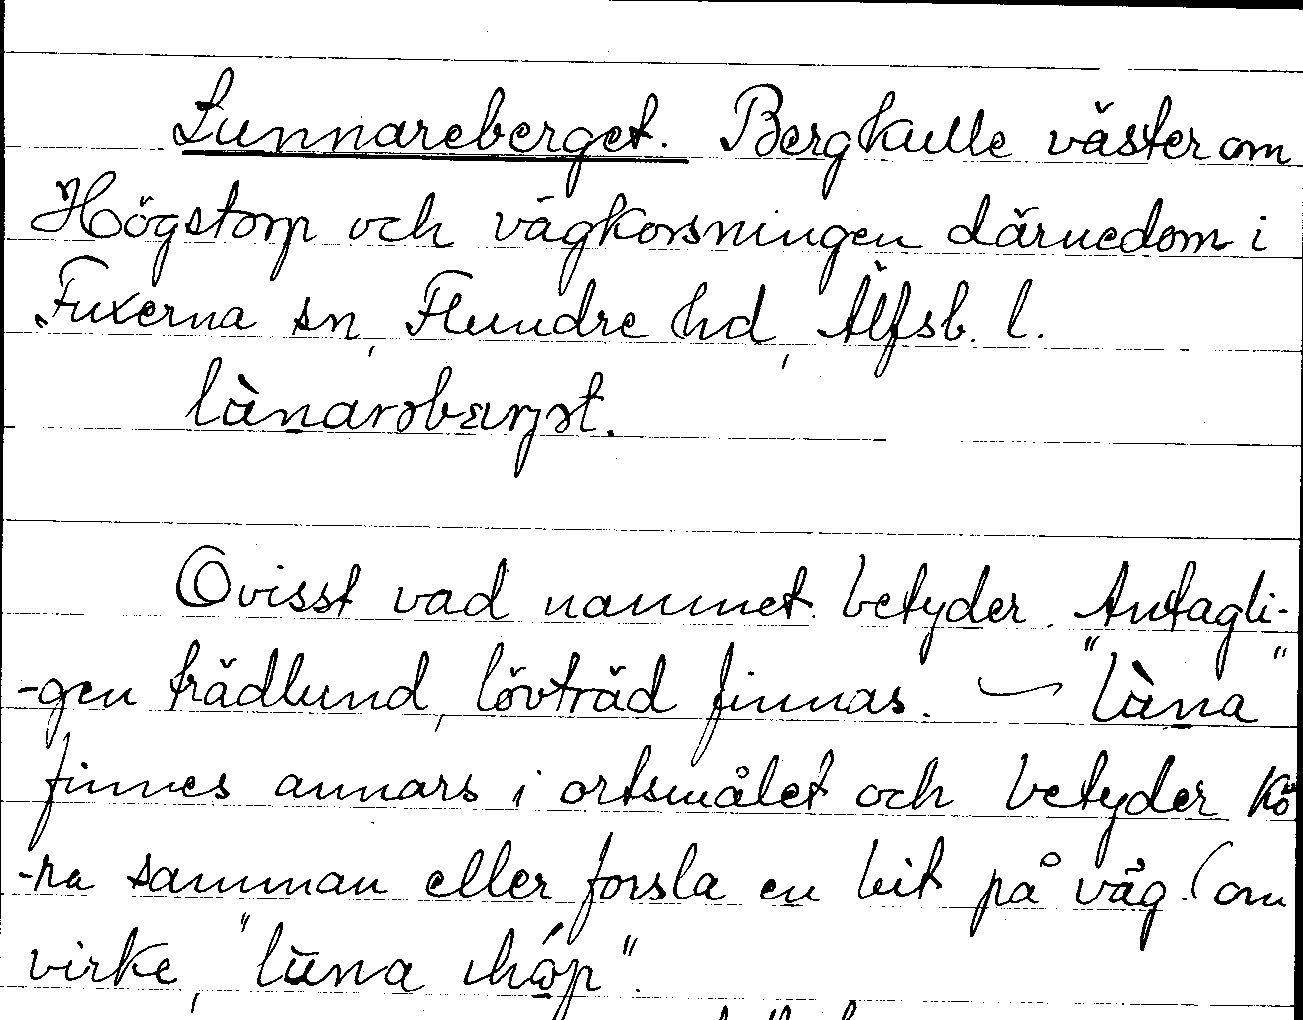 Lunnareberget. Bergkulle väster om
Högstorp och vägkorsningen därnedom i
Fuxerna sn, Flundre hd, Älfsb. l.
lànarəbærjət.
Ovisst vad namnet betyder. Antagli-
-gen trädlund, lövträd finnas. — "làna"
finnes annars i ortsmålet och betyder kö
-ra samman eller forsla en bit på väg (om
virke, "lüna ihóp".